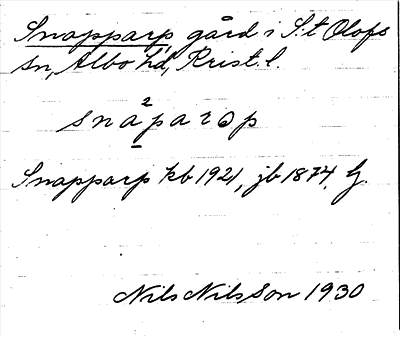 Snapparp gård i S:t Olofs
sn, Albo hd, Krist. l.
sna²parəp
Snapparp kb 1921, jb 1874.
Nils Nilsson 1930